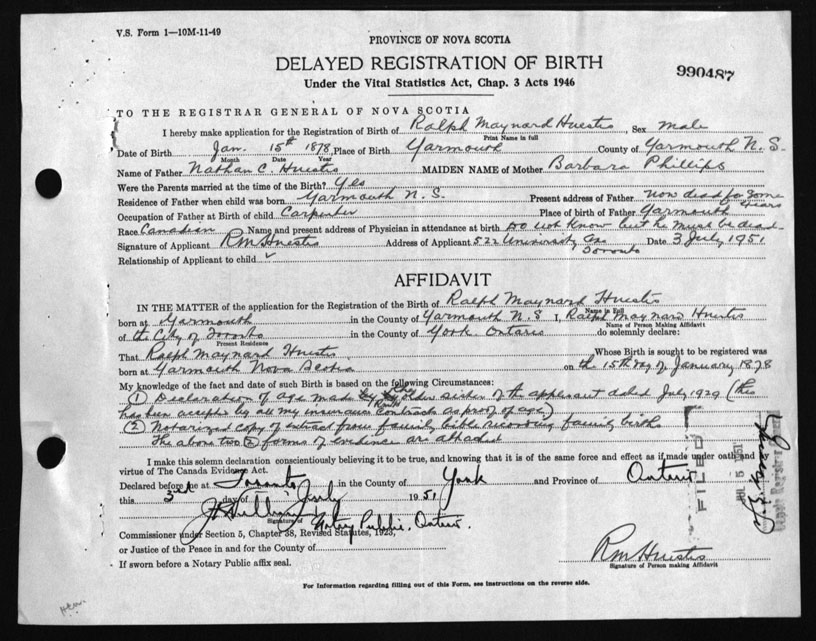 V.S. Form 1—10M-11-49
PROVINCE OF NOVA SCOTIA
DELAYED REGISTRATION OF BIRTH
Under the Vital Statistics Act, Chap. 3 Acts 1946
990487
TO THE REGISTRAR GENERAL OF NOVA SCOTIA
I hereby make application for the Registration of Birth of Ralph Maynard Huestis, Sex male
Print Name in full
Date of Birth Jan. 15th 1878, Place of Birth Yarmouth County of Yarmouth N.S.
Month Date Year
Name of Father Nathan C. Huestis MAIDEN NAME of Mother Barbara Phillips
Were the Parents married at the time of the Birth? Yes
Residence of Father when child was born Yarmouth N.S. Present address of Father now dead for some years
Occupation of Father at Birth of child Carpenter Place of birth of Father Yarmouth
Race Canadian Name and present address of Physician in attendance at birth Do not know but he must be dead
Signature of Applicant RM Huestis Address of Applicant 522 University Ave Toronto Date 3 July 1951
Relationship of Applicant to child
AFFIDAVIT
IN THE MATTER of the application for the Registration of the Birth of Ralph Maynard Huestis
Name in Full
born at Yarmouth in the County of Yarmouth N.S I, Ralph Maynard Huestis
Name of Person Making Affidavit
of the City of Toronto in the County of York Ontario do solemnly declare:
Present Residence
That Ralph Maynard Huestis Whose Birth is sought to be registered was
born at Yarmouth Nova Scotia on the 15th day of January 1878
My knowledge of the fact and date of such Birth is based on the following Circumstances:
(1) Declaration of age made by older sister of the applicant dated July 1929 (this
has been accepted by all my insurance contracts as proof of age)
(2) Notarized copy of extract from family bible recording family birth
The above two (2) forms of evidence are attached
I make this solemn declaration conscientiously believing it to be true, and knowing that it is of the same force and effect as if made under oath and
virtue of The Canada Evidence Act.
Declared before me at Toronto in the County of York and Province of Ontario
this 3rd day of July 1951
Signature of Notary Public, Ontario.
Commissioner under Section 5, Chapter 38, Revised Statutes, 1923,
or Justice of the Peace in and for the County of
If sworn before a Notary Public affix seal.
RM Huestis
Signature of Person making Affidavit
FILED
For information regarding filling out of this Form, see instructions on the reverse side.